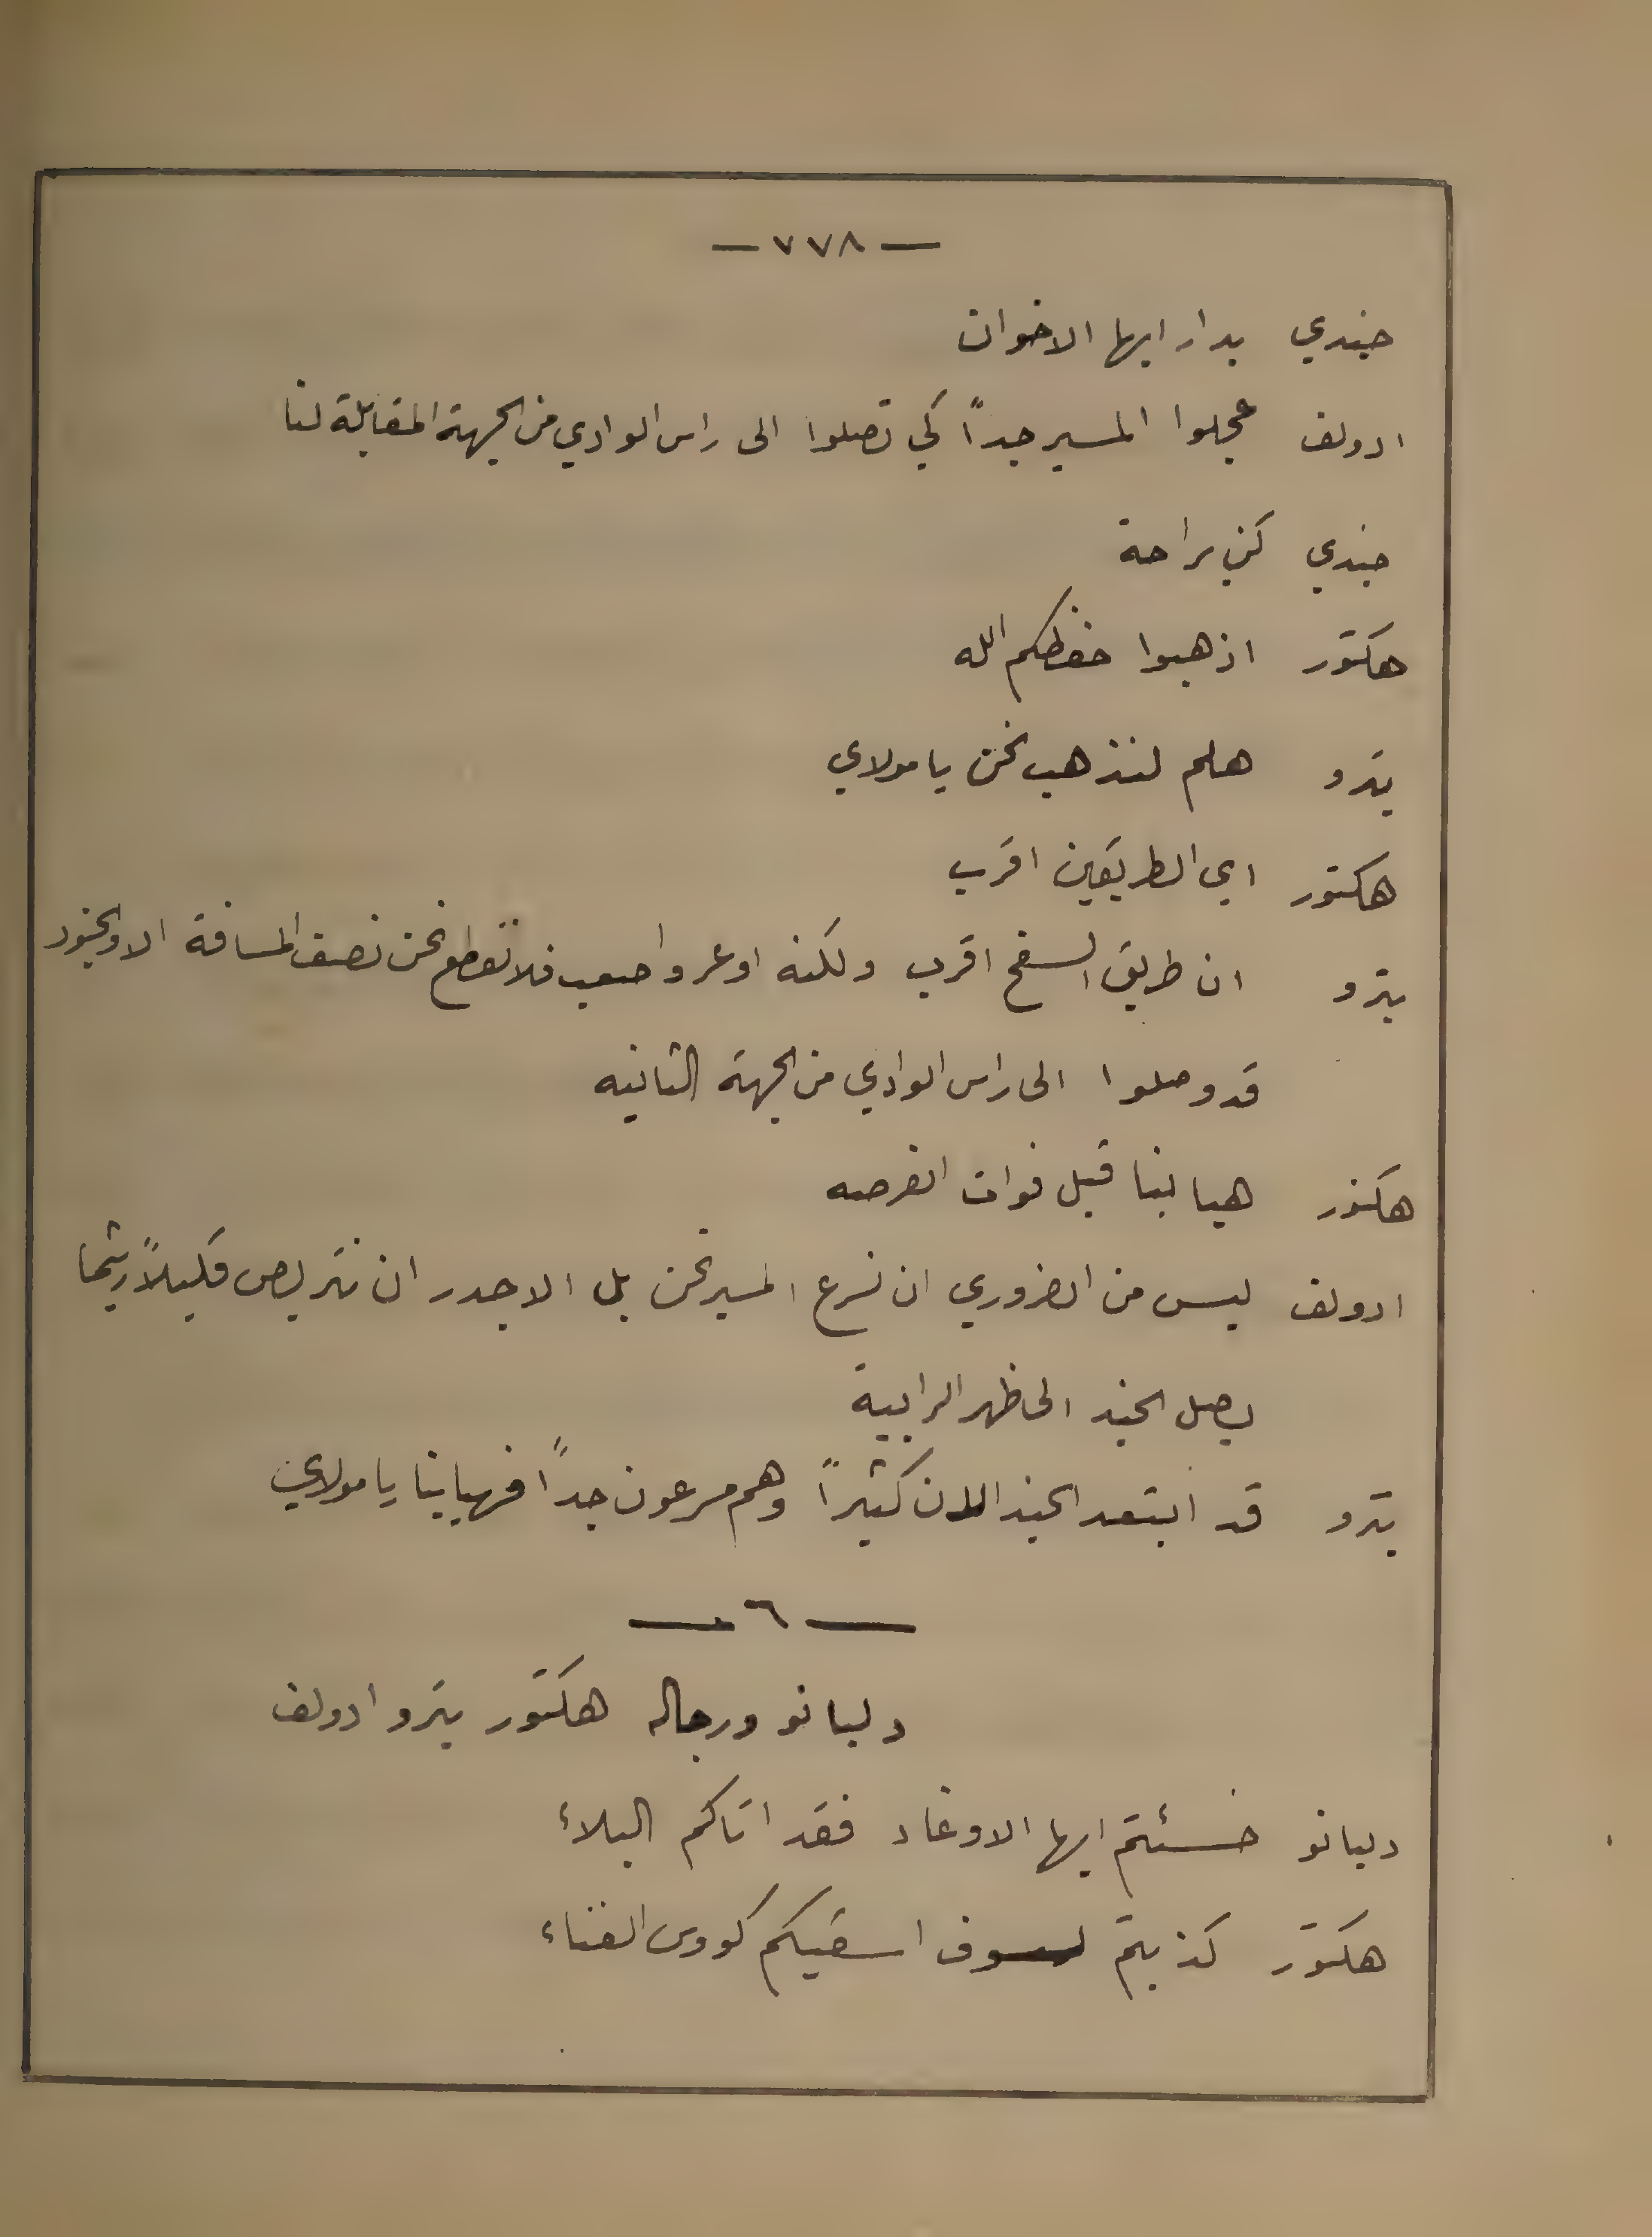 — ٧٧٨ —
جندي بدار ايها الاخوان
ادولف عجلوا المسير جداً كي تصلوا الى راس الوادي من الجهة المقابلة لنا
جندي كن براحة
هكتور اذهبوا حفظكم الله
بترو هلم لنذهب نحن يا مولاي
هكتور اي الطريقين اقرب
بترو ان طريق السفح اقرب ولكنه اوعر واصعب فلا نقطع نحن نصف المسافة الا والجنود
قد وصلوا الى راس الوادي من الجهة الثانيه
هكتور هيا بنا قبل فوات الفرصه
ادولف ليس من الضروري ان نسرع المسير نحن بل الاجدر ان نتربص قليلاً ريثما
يصل الجند الى ظهر الرابية
بترو قد ابتعد الجند الان كثيراً وهم مسرعون جداً فهيا بنا يا مولاي
— ٦ —
دليانو ورجاله هكتور بترو ادولف
دليانو خسئتم ايها الاوغاد فقد اتاكم البلاء
هكتور كذبتم لسوف اسقيكم كووس الفناء